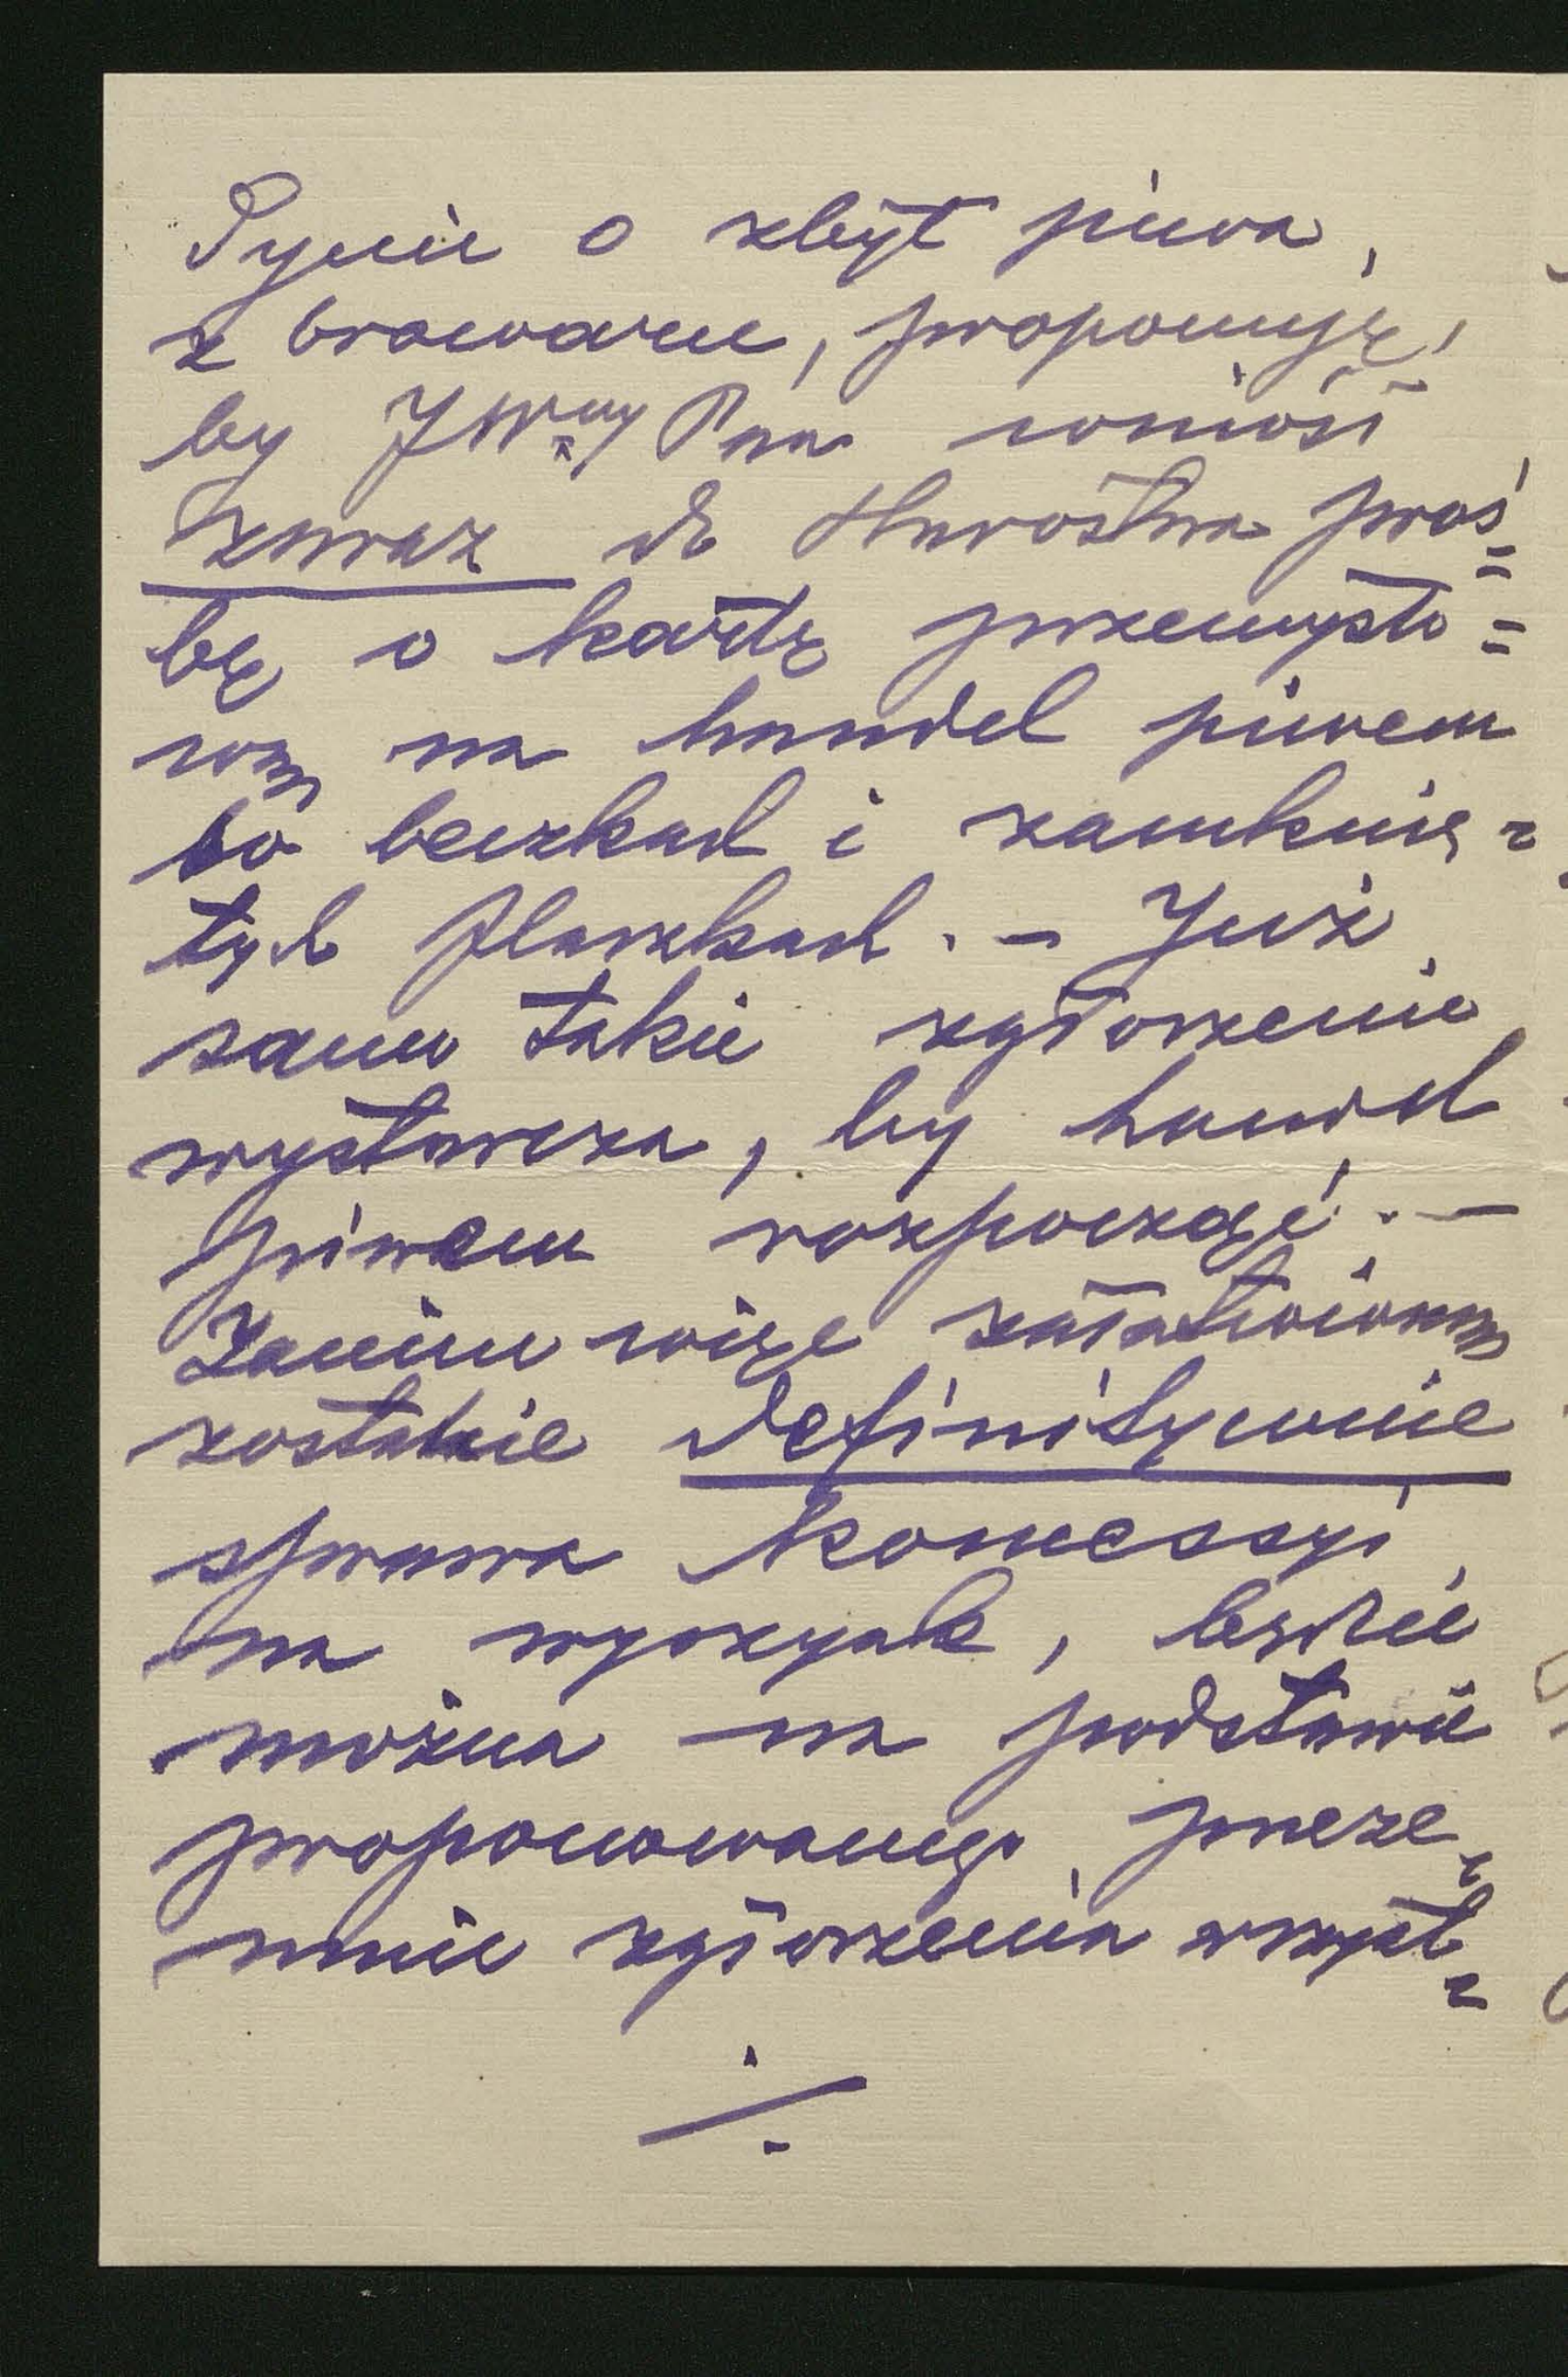 Tyczy o zbyt piwa,
z browaru, proponuję,
by JWny Pan wniósł
zaraz do Starostwa proś=
bę o kartę przemysło=
wą na handel piwem
w beczkach i zamknię=
tych flaszkach. – Już
samo takie zgłoszenie
wystarcza, by handel
piwem rozpocząć. –
Zanim więc załatwioną
zostanie definitywnie
sprawa koncessyi
na wyszynk, będzie
można na podstawie
proponowanego przeze=
mnie zgłoszenia wszyst=
./.